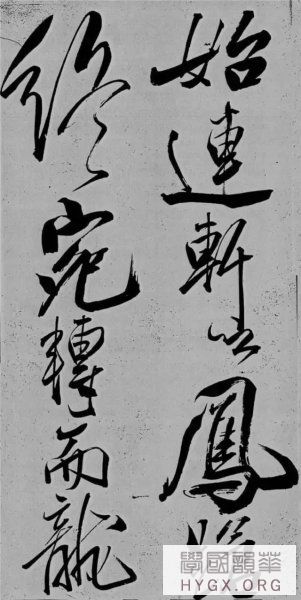 始連軒以鳳
終宛轉而龍
華韻國學
HYGX.ORG